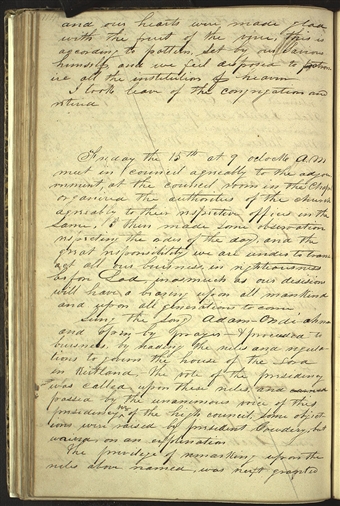 and our hearts were made glad
with the fruit of the vine, this is
according to pattern, set by our Savious
himself, and we feel disposed to patron
ize all the institution of heaven
I took leave of the congregation and
retired
Friday the 15th at 9 oclock A.M
meet in council agreably to the adjou
ment, at the council room in the Chap
organized the authorities of the church
agreably to their respective offices in the
same, I then made some observation
respecting the order of the day, and the
great responsibility we are under to trans
act all our business, in righteousness
before God, inasmuch as our desisions
will have a bearing upon all mankind
and upon all generations to come
Sung the song Adam-Ondi-ahman
and open by prayer — & proceeded to
business, by reading the rules and regula
tions to govern the house of the Lord
in Kirtland, The vote of the presidency
was called upon these rules, and
passed by the unanimous voice of this
presidency of the high council, some object
ions were raised by president Cowdery, but
waived, on an explination
The privilege of remarking upon the
rules above named, was next granted